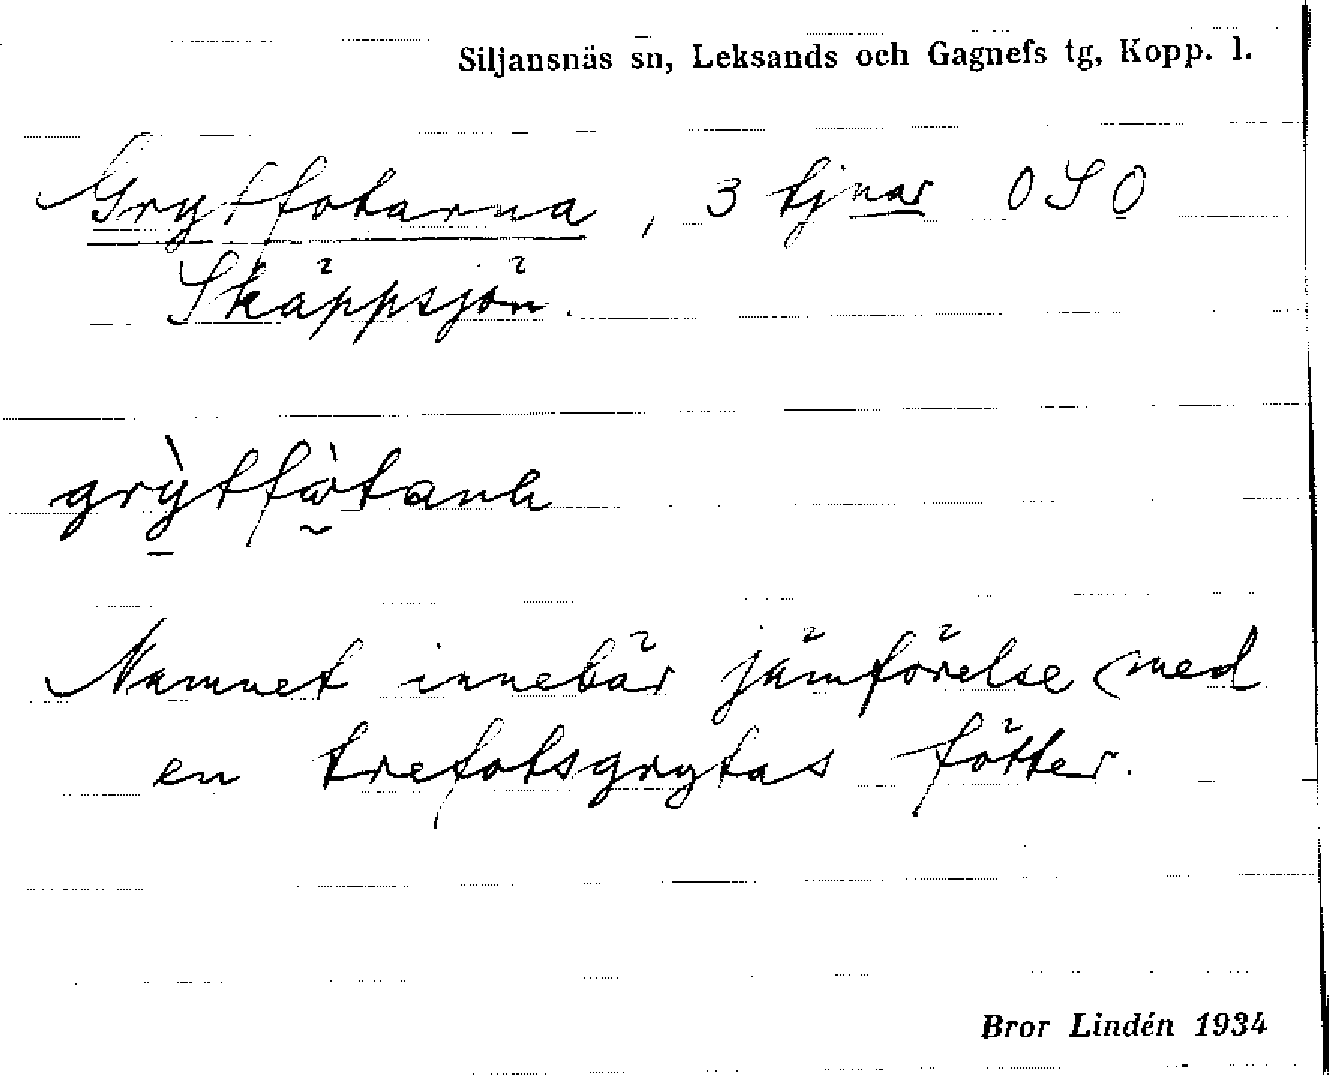 Siljansnäs sn, Leksands och Gagnefs tg, Kopp. l.
Grytfotarna, 3 tjnar OSO
Skäppsjön.
grỳtfὼtanh
Namnet innebär jämförelse med
en trefotsgrytas fötter.
Bror Lindén 1934